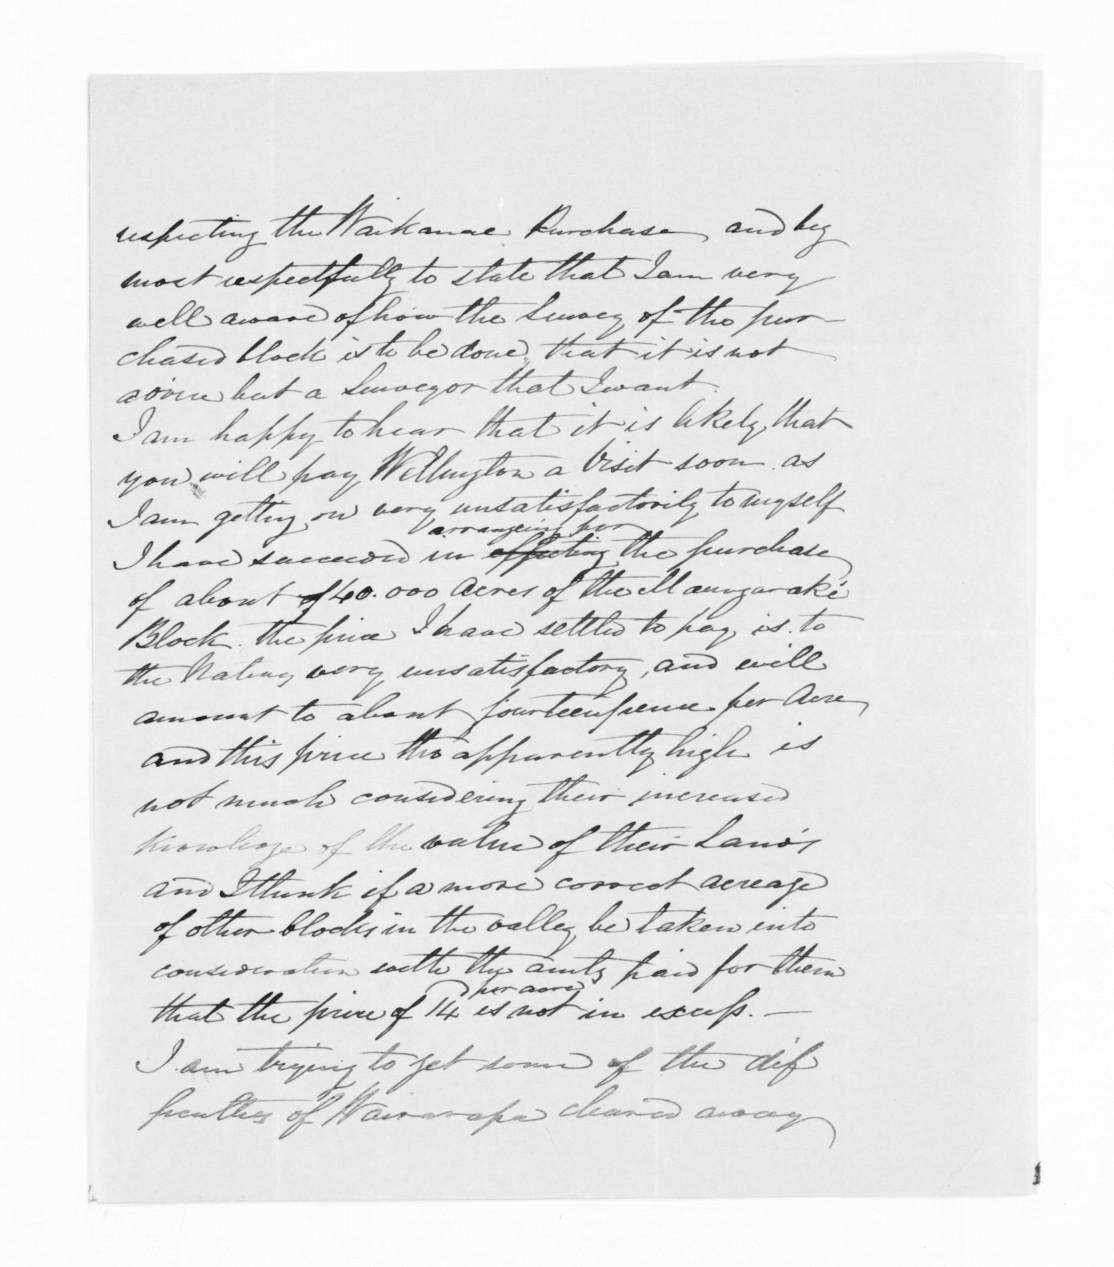 respecting the Waikanae Purchase, and beg
most respectfully to state that I am very
well aware of how the Survey of the pur-
chased block is to be done, that it is not
advice but a Surveyor that I want.
I am happy to hear that it is likely, that
you will pay Wellington a Visit soon. as
I am getting on very unsatisfactorily to myself
arrangeing for
I have succeeded in effecting the purchase
of about of 40.000 Acres of the Maungaraké
Block. the price I have settled to pay is. to
the Natives very unsatisfactory, and will
amount to about fourteenpence per Acre,
and this price tho' apparently high is
not much considering their increased
knowledge of the value of their Lands
and I think if a more correct acreage
of other blocks in the valley be taken into
consideration with the amts paid for them
per acre
that the price of 14d is not in excess. —
I am trying to get some of the dif
ficulties of Wairarapa cleared away